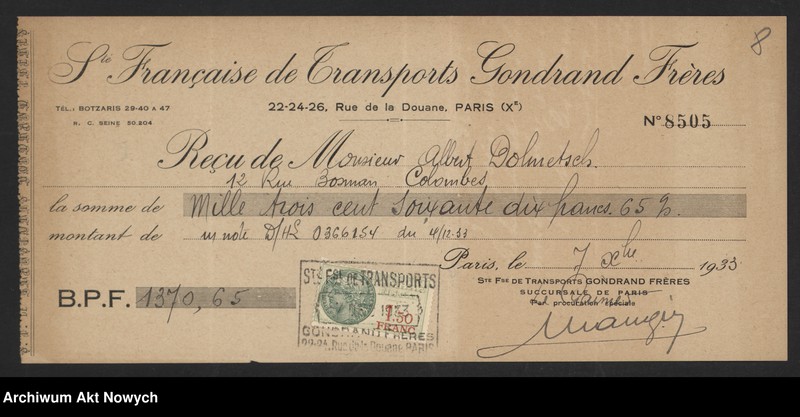 8
Sté Française de Transports Gondrand Frères
TÉL.: BOTZARIS 29-40 A 47
22-24-26, Rue de la Douane, PARIS (Xᴱ)
R. C. SEINE 50.204
Nº 8505
Reçu de Monsieur Albert Dolmetsch
12 Rue Bosman Colombes
la somme de Mille trois cent soixante dix francs. 65 c.
montant de n/ note D/HL 0366154 du 4/12.33
Paris, le 7 Xbre 1933
STÉ FSE DE TRANSPORTS GONDRAND FRÈRES
SUCCURSALE DE PARIS
Par procuration spéciale
B.P.F. 1370,65
STÉ FSE DE TRANSPORTS
1.50
FRANC
GONDRAND FRÈRES
22-24, Rue de la Douane, PARIS
Archiwum Akt Nowych